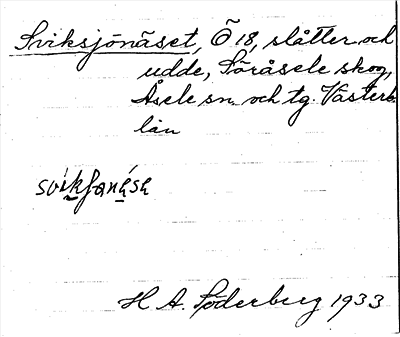 Sviksjönäset, Ö 18, slåtter och
udde, Söråsele skog,
Åsele sn. och tg. Västerb.
län
svikfanǽsə
H A. Söderberg 1933